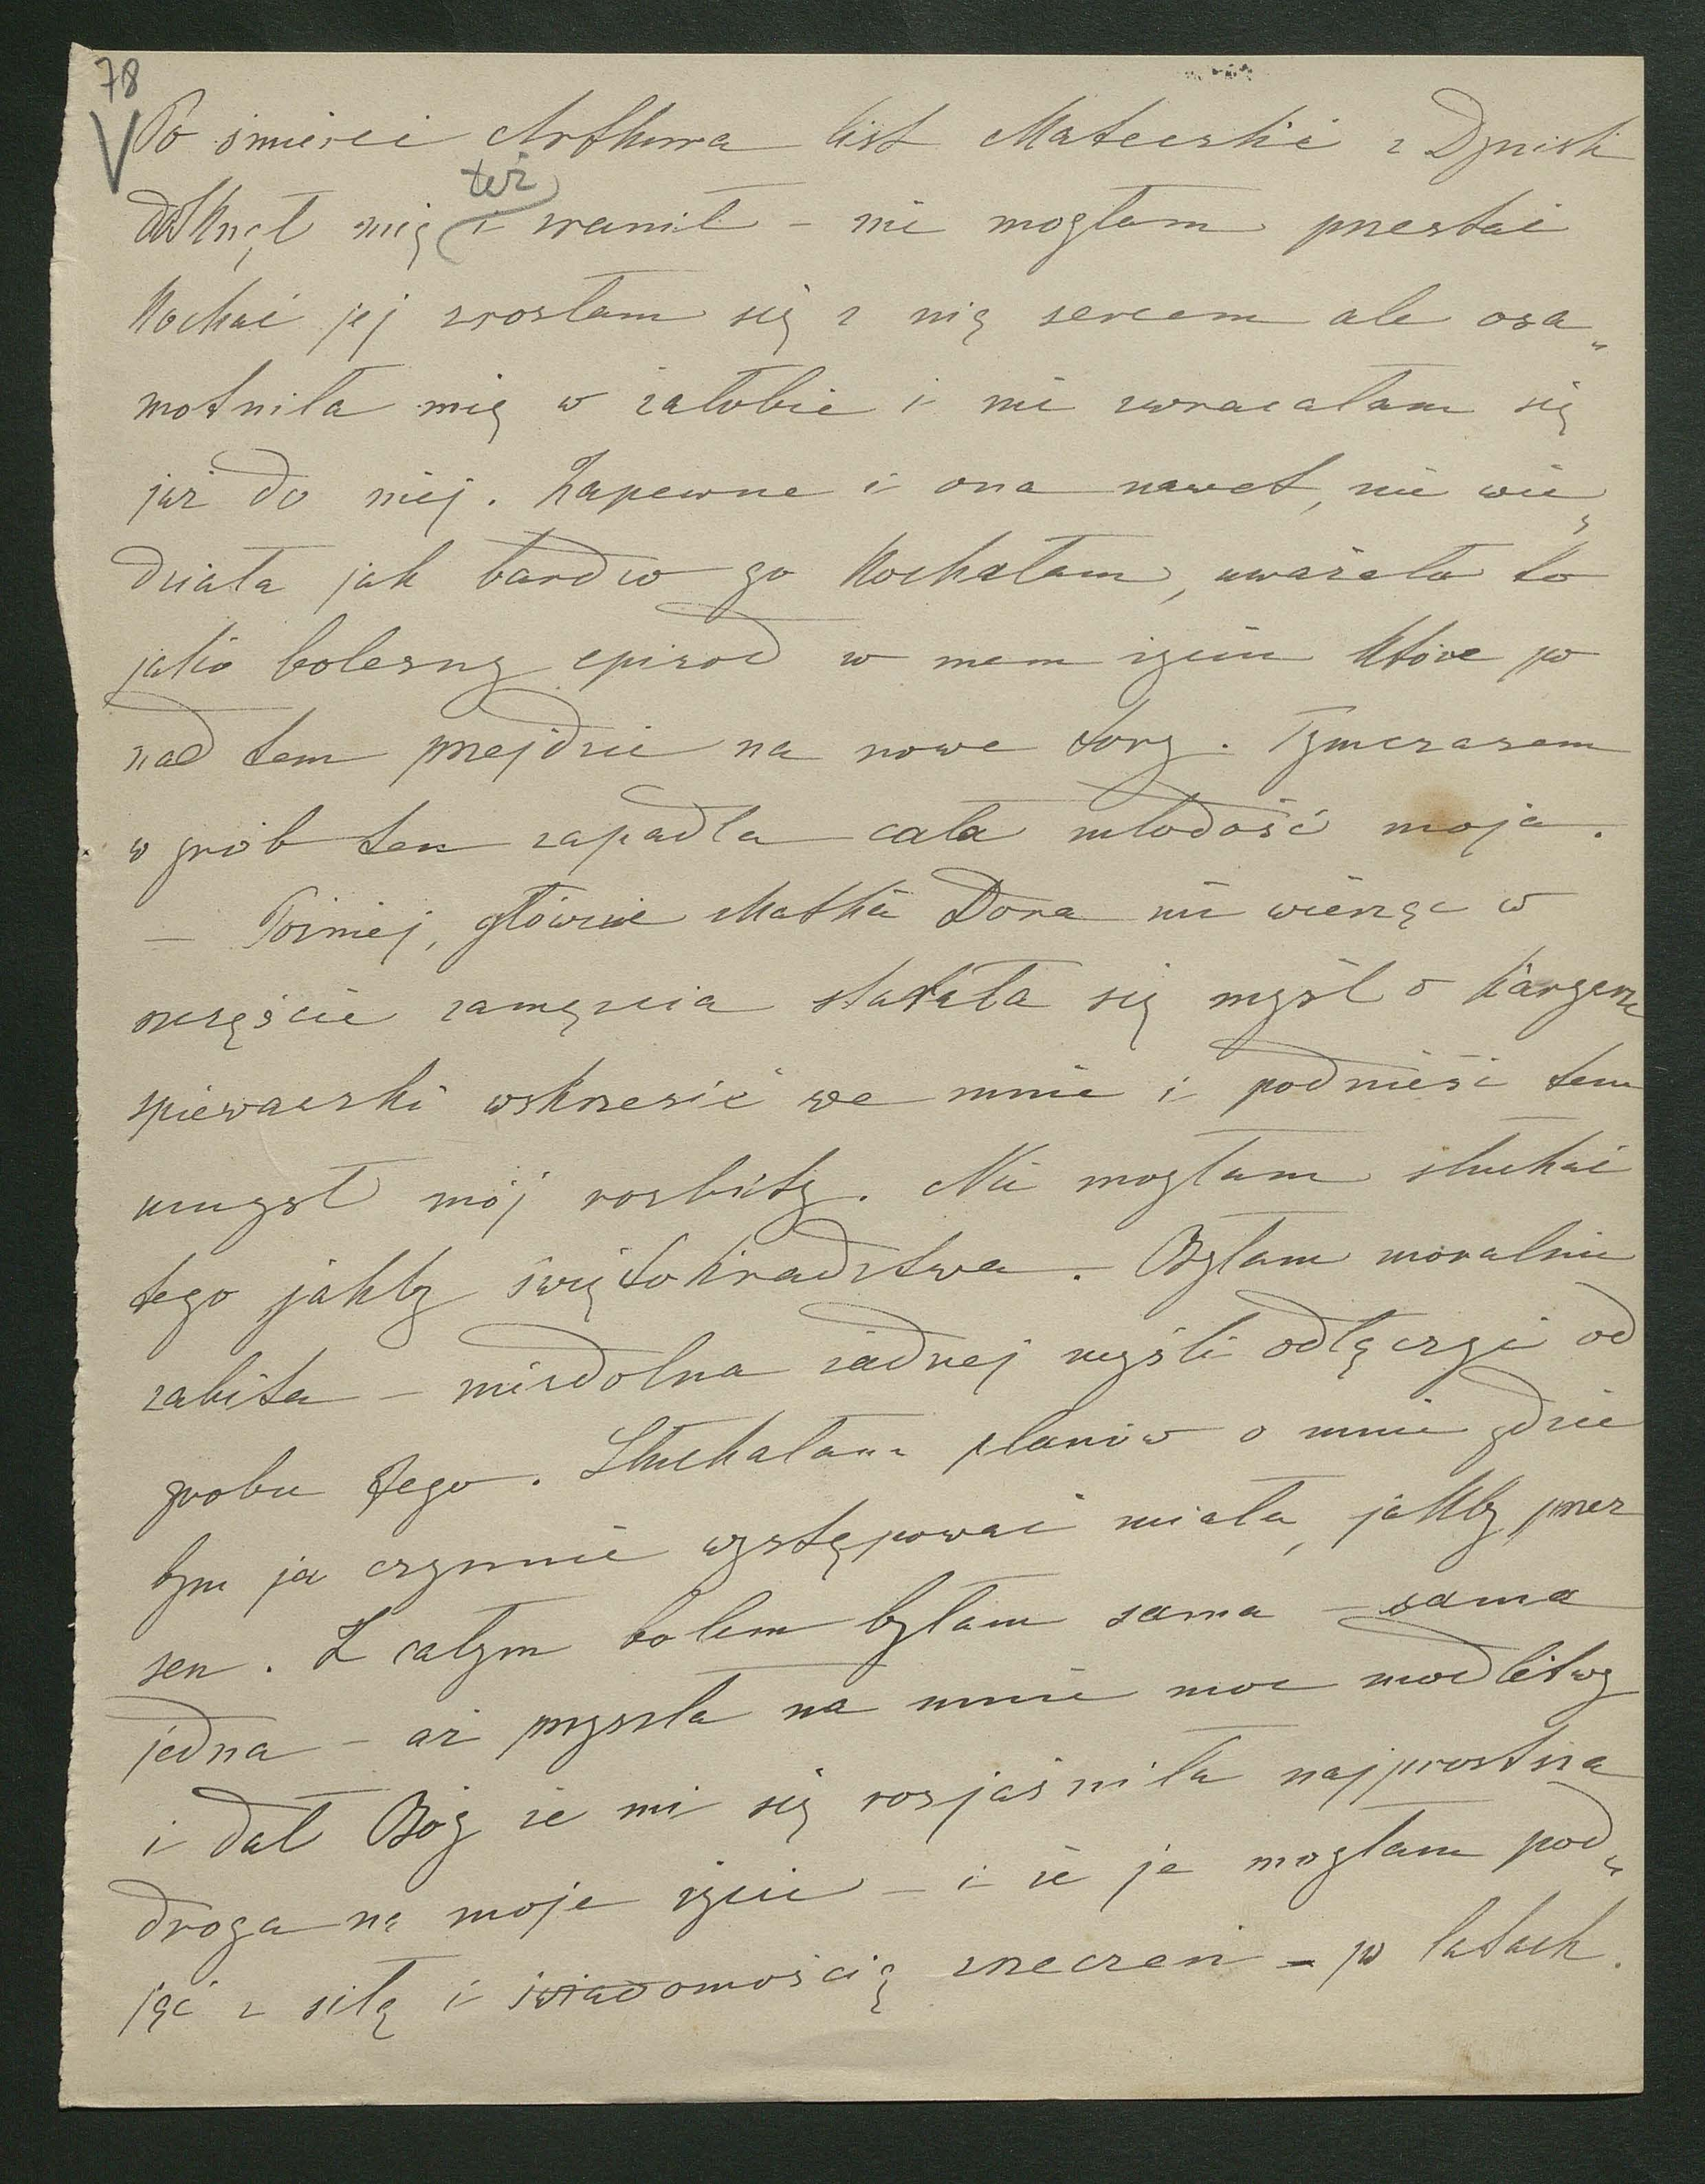 78
V Po śmierci Arthura list Mateczki z Dynisk
też
dotknął mię i zranił – nie mogłam przestać
kochać jej zrosłam się z nią sercem ale osa„
motniła mię w żałobie i nie zwracałam się
już do niej. Zapewne i ona nawet, nie wie„
działa jak bardzo go kochałam, uważała to
jako bolesny epizod w mem życiu które po
nad tem przejdzie na nowe tory. Tymczasem
w grób ten zapadła cała młodość moja.
– Poźniej, głównie Matka Dora nie wierząc w
szczęście zamęzcia starała się myśl o karyerze
spiewaczki wskrzesić we mnie i podnieść tem
umysł mój rozbity. Nie mogłam słuchać
tego jakby świętokradztwa. Byłam moralnie
zabita – niezdolna żadnej myśli odłączyć od
grobu tego. Słuchałam planów o mnie gdzie
bym ja czynnie występować miała, jakby przez
sen. Z całym bolem byłam sama – sama
jedna – aż przyszła na mnie moc modlitwy
i dał Bóg że mi się rozjaśniła najprostsza
droga na moje życie – i że je mogłam pod„
jąć z siłą i świadomością wyrzeczeń – po latach.